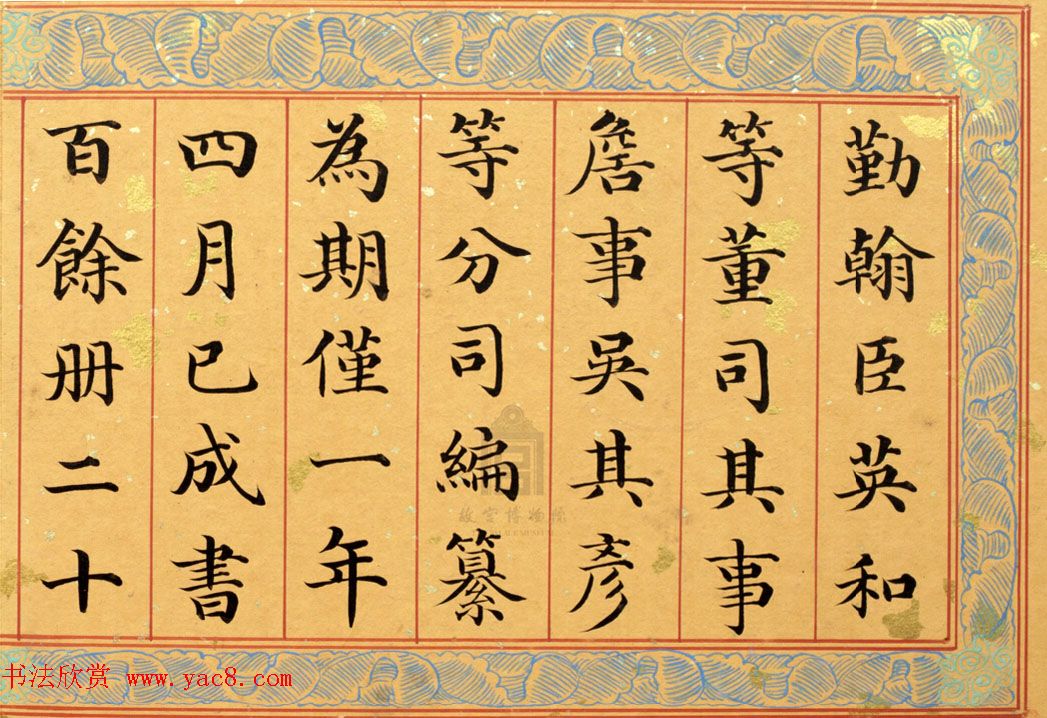 勤翰臣英和
等董司其事
詹事吳其彥
等分司編纂
為期僅一年
四月已成書
百餘冊二十
故宮博物院
书法欣赏 www.yac8.com